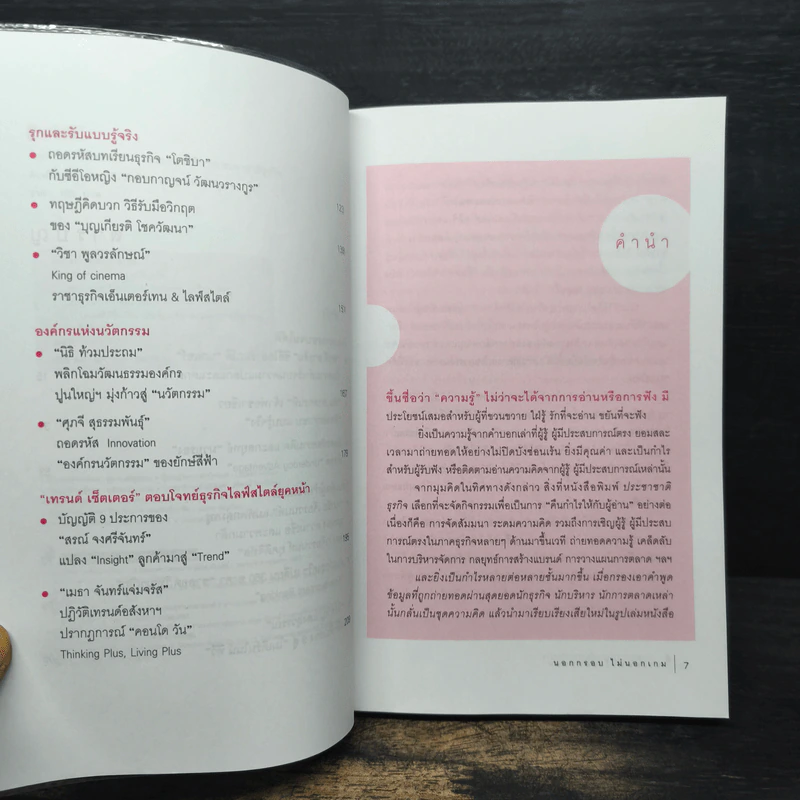 รุกและรับแบบรู้จริง
• ถอดรหัสบทเรียนธุรกิจ “โตชิบา”
กับซีอีโอหญิง “กอบกาญจน์ วัฒนวรางกูร”
• ทฤษฎีคิดบวก วิธีรับมือวิกฤต
ของ “บุญเกียรติ โชควัฒนา”
• “วิชา พูลวรลักษณ์”
King of cinema
ราชาธุรกิจเอ็นเตอร์เทน & ไลฟ์สไตล์
องค์กรแห่งนวัตกรรม
• “นิธิ ท้วมประถม”
พลิกโฉมวัฒนธรรมองค์กร
ปูนใหญ่ฯ มุ่งก้าวสู่ “นวัตกรรม”
• “ศุภจี สุธรรมพันธุ์”
ถอดรหัส Innovation
“องค์กรนวัตกรรม” ของยักษ์สีฟ้า
“เทรนด์ เซ็ตเตอร์” ตอบโจทย์ธุรกิจไลฟ์สไตล์ยุคหน้า
• บัญญัติ 9 ประการของ
“สรณ์ จงศรีจันทร์”
แปลง “Insight” ลูกค้ามาสู่ “Trend”
• “เมธา จันทร์แจ่มจรัส”
ปฏิวัติเทรนด์อสังหาฯ
ปรากฏการณ์ “คอนโด วัน”
Thinking Plus, Living Plus
คำนำ
ขึ้นชื่อว่า “ความรู้” ไม่ว่าจะได้จากการอ่านหรือการฟัง มี
ประโยชน์เสมอสำหรับผู้ที่ขวนขวาย ใฝ่รู้ รักที่จะอ่าน ขยันที่จะฟัง
ยิ่งเป็นความรู้จากคำบอกเล่าที่ผู้รู้ ผู้มีประสบการณ์ตรง ยอมสละ
เวลามาถ่ายทอดให้อย่างไม่ปิดบังซ่อนเร้น ยิ่งมีคุณค่า และเป็นกำไร
สำหรับผู้รับฟัง หรือติดตามอ่านความคิดจากผู้รู้ ผู้มีประสบการณ์เหล่านั้น
จากมุมคิดในทิศทางดังกล่าว สิ่งที่หนังสือพิมพ์ ประชาชาติ
ธุรกิจ เลือกที่จะจัดกิจกรรมเพื่อเป็นการ “คืนกำไรให้กับผู้อ่าน” อย่างต่อ
เนื่องก็คือ การจัดสัมมนา ระดมความคิด รวมถึงการเชิญผู้รู้ ผู้มีประสบ
การณ์ตรงในภาคธุรกิจหลายๆ ด้านมาขึ้นเวที ถ่ายทอดความรู้ เคล็ดลับ
ในการบริหารจัดการ กลยุทธ์การสร้างแบรนด์ การวางแผนการตลาด ฯลฯ
และยิ่งเป็นกำไรหลายต่อหลายชั้นมากขึ้น เมื่อกรองเอาคำพูด
ข้อมูลที่ถูกถ่ายทอดผ่านสุดยอดนักธุรกิจ นักบริหาร นักการตลาดเหล่า
นั้นกลั่นเป็นชุดความคิด แล้วนำมาเรียบเรียงเสียใหม่ในรูปเล่มหนังสือ
นอกกรอบ ไม่นอกเกม | 7